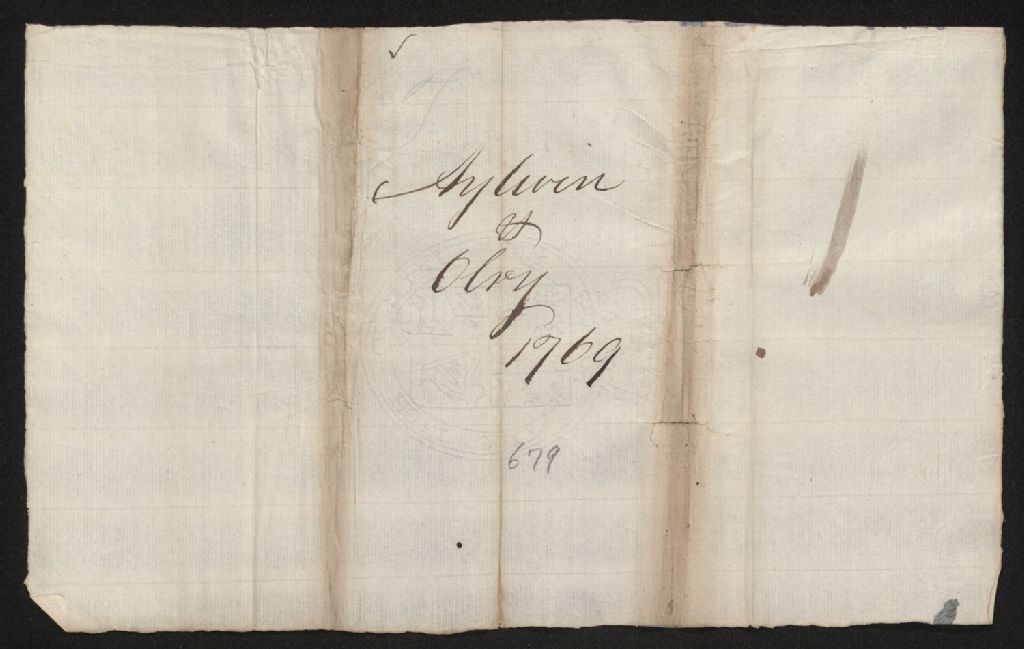 Aylwin
vs
Olry
1769
679